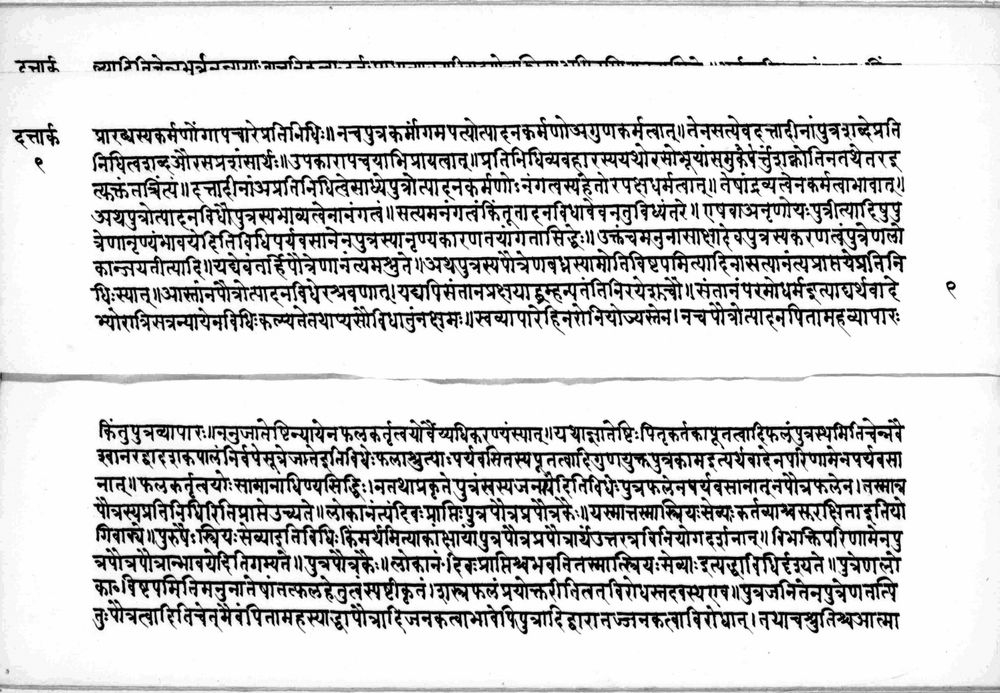 दत्तार्क
दत्तार्क प्रारब्धस्यकर्मणोंगापचारेप्रतिनिधिः॥नचपुत्रकर्मांगमपत्योत्पादनकर्मणोअगुणकर्मत्वात्॥तेनसत्येवदत्तादीनांपुत्रशब्देप्रति
९ निधित्वशब्दऔरसप्रशंसार्थः॥उपकारापचयाभिप्रायत्वात्॥प्रतिनिधिव्यवहारस्ययथोरसोभूयांसमुत्कर्षंकर्त्तुंशक्नोतिनतथेतरइ
त्युक्तंतच्चिंत्यं॥दत्तादीनांअप्रतिनिधित्वेसाध्येपुत्रोत्पादनकर्मणोऽनंगत्वस्यहेतोरपक्षधर्मत्वात्॥तेषांद्रव्यत्वेनकर्मत्वाभावात्॥
अथपुत्रोत्पादनविधौपुत्रस्यभाव्यत्वेनानंगत्वं॥सत्यमनंगत्वंकिंतूत्पादनविधावेवनतुविध्यंतरे॥एषवाअनृणोयःपुत्रीत्यादिषुपु
त्रेणानृण्यंभावयेदितिविधिपर्यवसानेनपुत्रस्यानृण्यकारणतयांगतासिद्धेः॥उक्तंचमनुनासाक्षादेवपुत्रस्यकरणत्वंपुत्रेणलो
कान्जयतीत्यादि॥यद्येवंतर्हिपौत्रेणानंत्यमश्नुते॥अथपुत्रस्यपौत्रेणबध्नस्याप्नोतिविष्टपमित्यादिनासत्यानंत्यप्राप्तयेप्रतिनि
धिःस्यात्॥आस्तांनपौत्रोत्पादनविधेरश्रवणात्॥यद्यपिसंतानप्रक्षया
संतानंपरमोधर्मइत्याद्यर्थवादे ९
भ्योरात्रिसत्रन्यायेनविधिःकल्प्यतेतथाप्यसौविधातुंनक्षमः॥स्वव्यापारेहिनरोनियोज्यस्तेन।नचपौत्रोत्पादनंपितामहव्यापारः
किंतुपुत्रव्यापारः॥ननुजातेष्टिन्यायेनफलकर्तृत्वयोर्वैय्यधिकरण्यंस्यात्॥यथाज्ञातेष्टिःपितृकर्तृकापूतत्वादिफलंपुत्रस्यमितिचेन्नवै
श्वानरद्वादशकपालंनिर्वपेत्पुत्रेजातेइतिविधेःफलाश्रुत्याःपर्यवसितस्यपूतत्वादिगुणयुक्तपुत्रकामइत्यर्थवादेनपरिणामेनपर्यवसा
नात्॥फलकर्तृत्वयोःसामानाधिण्यसिद्धिः।नतथाप्रकृतेपुत्रस्यजनयेदितिविधेःपुत्रफलेनपर्यवसानात्नपौत्रफलेन।तस्मात्प
पौत्रस्यप्रतिनिधिरितिप्राप्तेउच्यते॥लोकानंत्यंदिवःप्राप्तिःपुत्रपौत्रप्रपौत्रकैः॥यस्मात्तस्मात्स्त्रियःसेव्याःकर्तव्याश्चसुरक्षिताइतियो
गिवाक्ये॥पुरुषैःस्त्रियःसेव्याइतिविधिःकिमर्थमित्याकांक्षायांपुत्रपौत्रप्रपौत्रार्थंउत्तरत्रविनियोगदर्शनात्॥विभक्तिपरिणामेनपु
त्रपौत्रपौत्रान्भावयेदितिगम्यते॥पुत्रपौत्रकैः॥लोकानंदिवःप्राप्तिश्चभवतितस्मात्स्त्रियःसेव्याःइत्यद्धाविधिर्दृश्यते॥पुत्रेणलो
विष्टपमितिमनुनातेषांतत्फलहेतुत्वंस्पष्टीकृतं।शास्त्रफलंप्रयोक्तरीतितत्विरोधस्तदवस्थएव॥पुत्रजनितेनपुत्रेणतत्पि
तुःपौत्रत्वादितिचेत्मैवंपितामहस्याद्धापौत्रादिजनकत्वाभावेपिपुत्रादिद्वारातज्जनकत्वाविरोधात्।तथाचश्रुतिश्चआत्मा